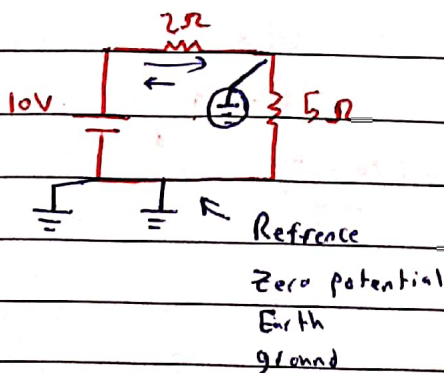 2Ω
10V
5Ω
Refrence
Zero potential
Earth
ground